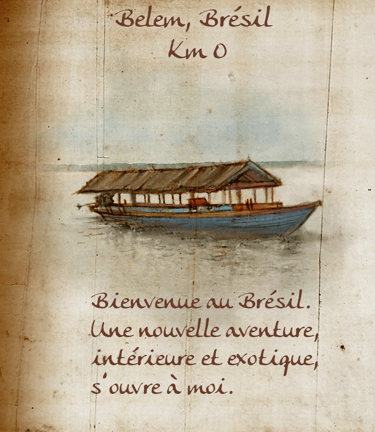 Belem, Brésil
Km 0
Bienvenue au Brésil.
Une nouvelle aventure,
intérieure et exotique,
s'ouvre à moi.